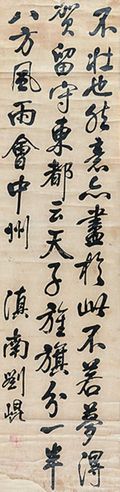 不壮也然意亦盡於此不若夢得
賀留守東都云天子旌旗分一半
八方風雨會中州
滇南劉崐